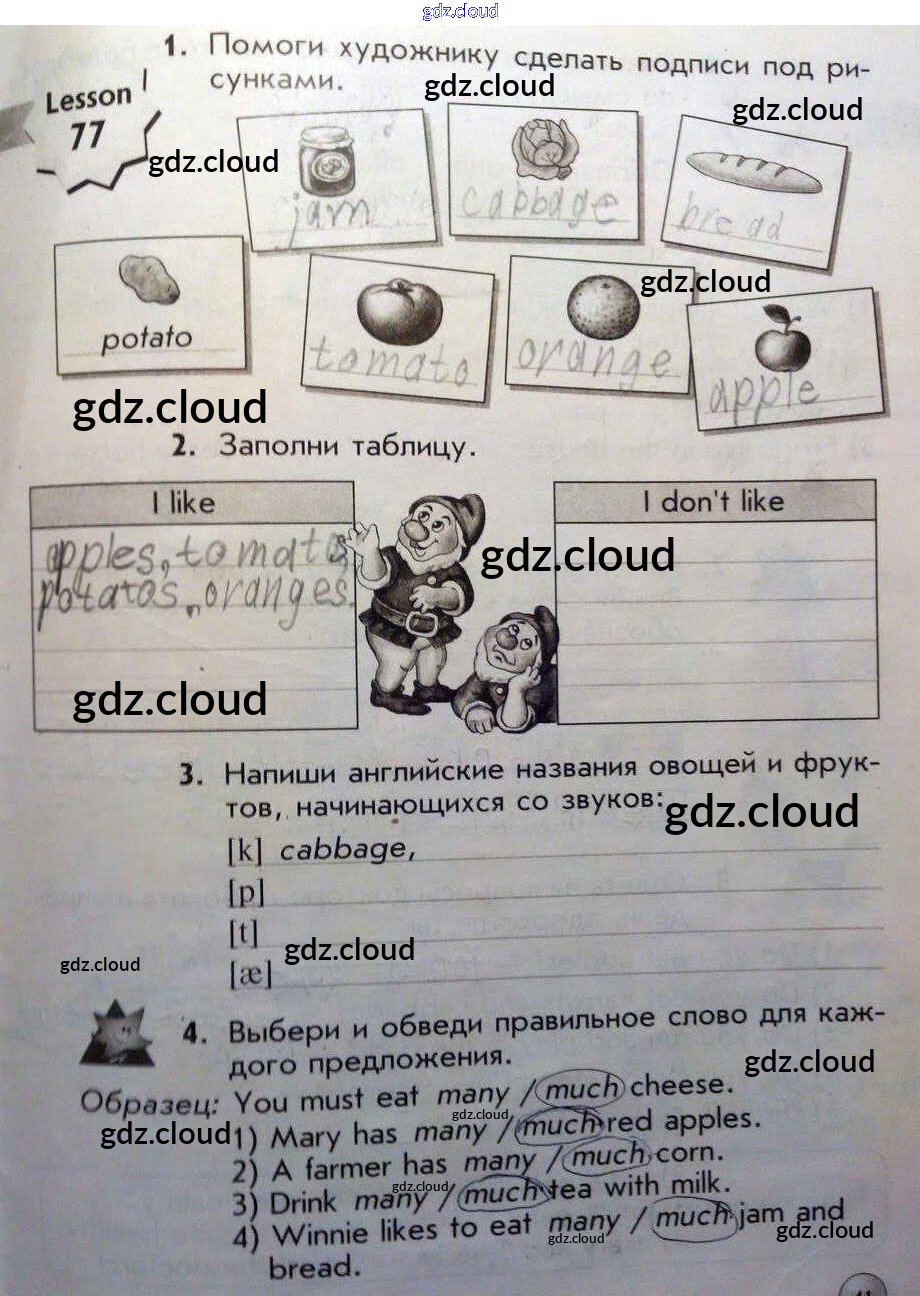 gdz.cloud
1. Помоги художнику сделать подписи под ри-
сунками.
gdz.cloud
gdz.cloud
Lesson
77
gdz.cloud
jam
cabbage
bread
potato
tomato
orange
apple
gdz.cloud
gdz.cloud
2. Заполни таблицу.
I like
I don't like
apples, tomatos,
potatos, oranges.
gdz.cloud
gdz.cloud
3. Напиши английские названия овощей и фрук-
тов, начинающихся со звуков:
gdz.cloud
[k] cabbage,
[p]
[t]
gdz.cloud
gdz.cloud
[æ]
4. Выбери и обведи правильное слово для каж-
дого предложения.
gdz.cloud
Образец: You must eat many / much cheese.
gdz.cloud
gdz.cloud
1) Mary has many / much red apples.
2) A farmer has many / much corn.
gdz.cloud
3) Drink many / much tea with milk.
4) Winnie likes to eat many / much jam and
gdz.cloud
gdz.cloud
bread.